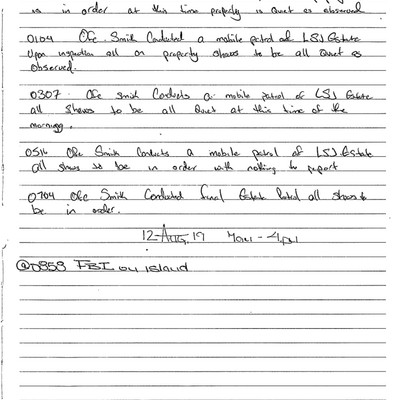 is in order at this time property is Quiet as observed
0104 Ofc. Smith Conducted a mobile patrol of LSJ Estate
Upon inspection all on property shows to be all Quiet as
observed.
0307. Ofc Smith Conducts a mobile patrol of LSJ Estate
all shows to be all Quiet at this time of the
morning.
0516 Ofc Smith Conducts a mobile patrol of LSJ Estate
all shows to be in order with nothing to report
0704 Ofc Smith Conducted final Estate Patrol all shows to
be in order.
12-AUG.19 7AM-4PM
@0858 FBI on island